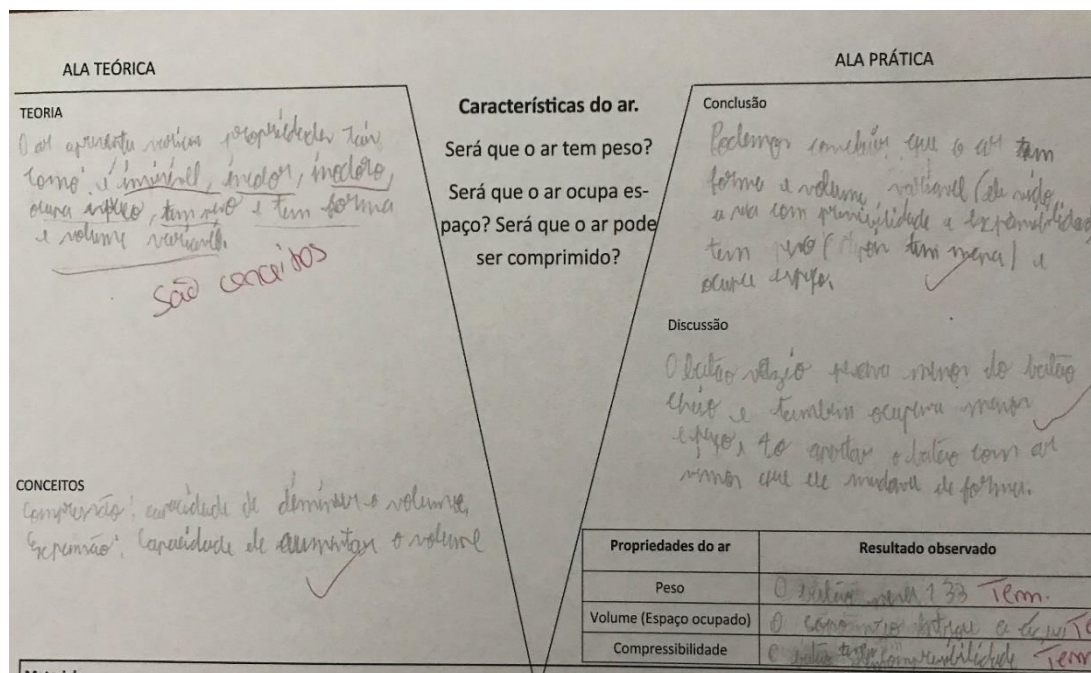 ALA TEÓRICA
TEORIA
O ar apresenta varias propriedades tais
como é invisível, incolor, inodoro,
ocupa espaço, tem peso e tem forma
e volume variavél.
São conceitos
CONCEITOS
Compressão: capacidade de diminuir o volume,
Expansão: Capacidade de aumentar o volume
Características do ar.
Será que o ar tem peso?
Será que o ar ocupa es-
paço? Será que o ar pode
ser comprimido?
ALA PRÁTICA
Conclusão
Podemos concluir que o ar tem
forma e volume variável (ele
a sua com
tem peso ( tem massa) e
ocupa espaço.
Discussão
O balão vazio pesava menos do balão
cheio e também ocupava menor
espaço, ao apertar o balão com ar
vimos que ele mudava de forma.
Propriedades do ar Resultado observado
Peso O balão 1 33 Tem.
Volume (Espaço ocupado) O a
Compressibilidade O balão tem compressibilidade Tem